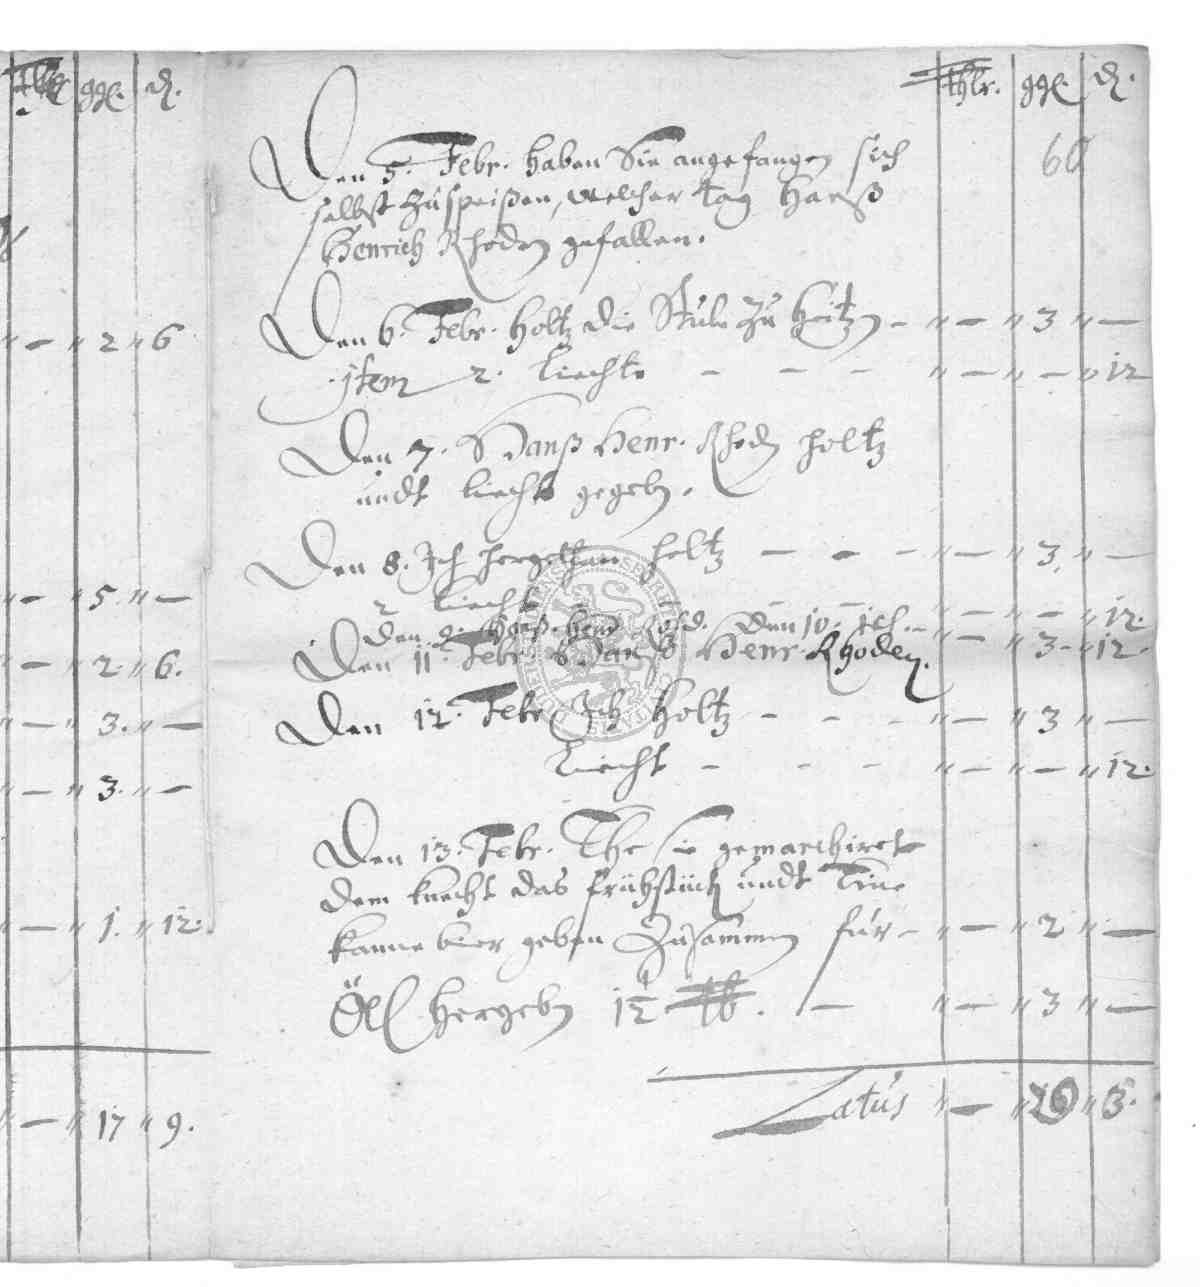 thlr. ggl. d.
" — " 2 " 6
" — " 5. " —
" — " 2. " 6.
" — " 3. " —
" — " 3. " —
" — " 1. " 12.
" — " 17 " 9.
thlr. ggl. d.
60
Den 5. Febr. haben Sie angefangen sich
selbst zu speißen, welcher tag Hanß
Henrich Rhoden gefallen.
Den 6. Febr. holtz die Stube zu heitzen - " — " 3 " —
item 2. liechte - - - " — " — " 12
Den 7. Hanß Henr. Rhoden holtz
undt liecht gegeben.
Den 8. Ich hergethan holtz — - - " — " 3. " —
2 liecht - - " — " — " 12.
den 9. Hanß Henr. Rhod. den 10. ich - " — " 3 - " 12.
Den 11. Febr. Hanß Henr. Rhoden.
Den 12. Febr. Ich holtz - - - " — " 3 " —
Liecht - - - " — " — " 12.
Den 13. Febr. Ehe sie gemarchiret
dem knecht das frühstück undt Eine
kanne bier geben zusammen für - " — " 2 " —
Öel hergeben 1 lb. — " — " 3 " —
Latus " — " " 3.